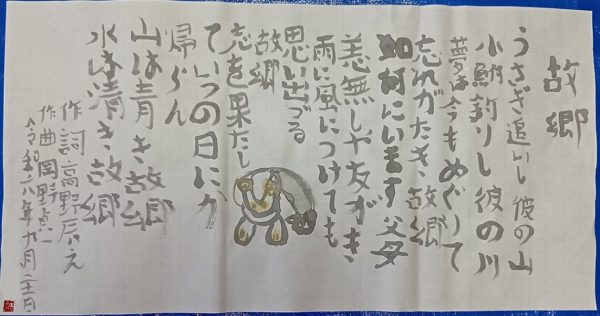 故郷
うさぎ追いし彼の山
小鮒釣りし彼の川
夢は今もめぐりて
忘れがたき故郷
如何にいます父母
恙無しや友がき
雨に風につけても
思い出づる
故郷
志を果たし
ていつの日にか
帰らん
山は青き故郷
水は清き故郷
作詞 高野辰之
作曲 岡野貞一
令和六年九月二十二日